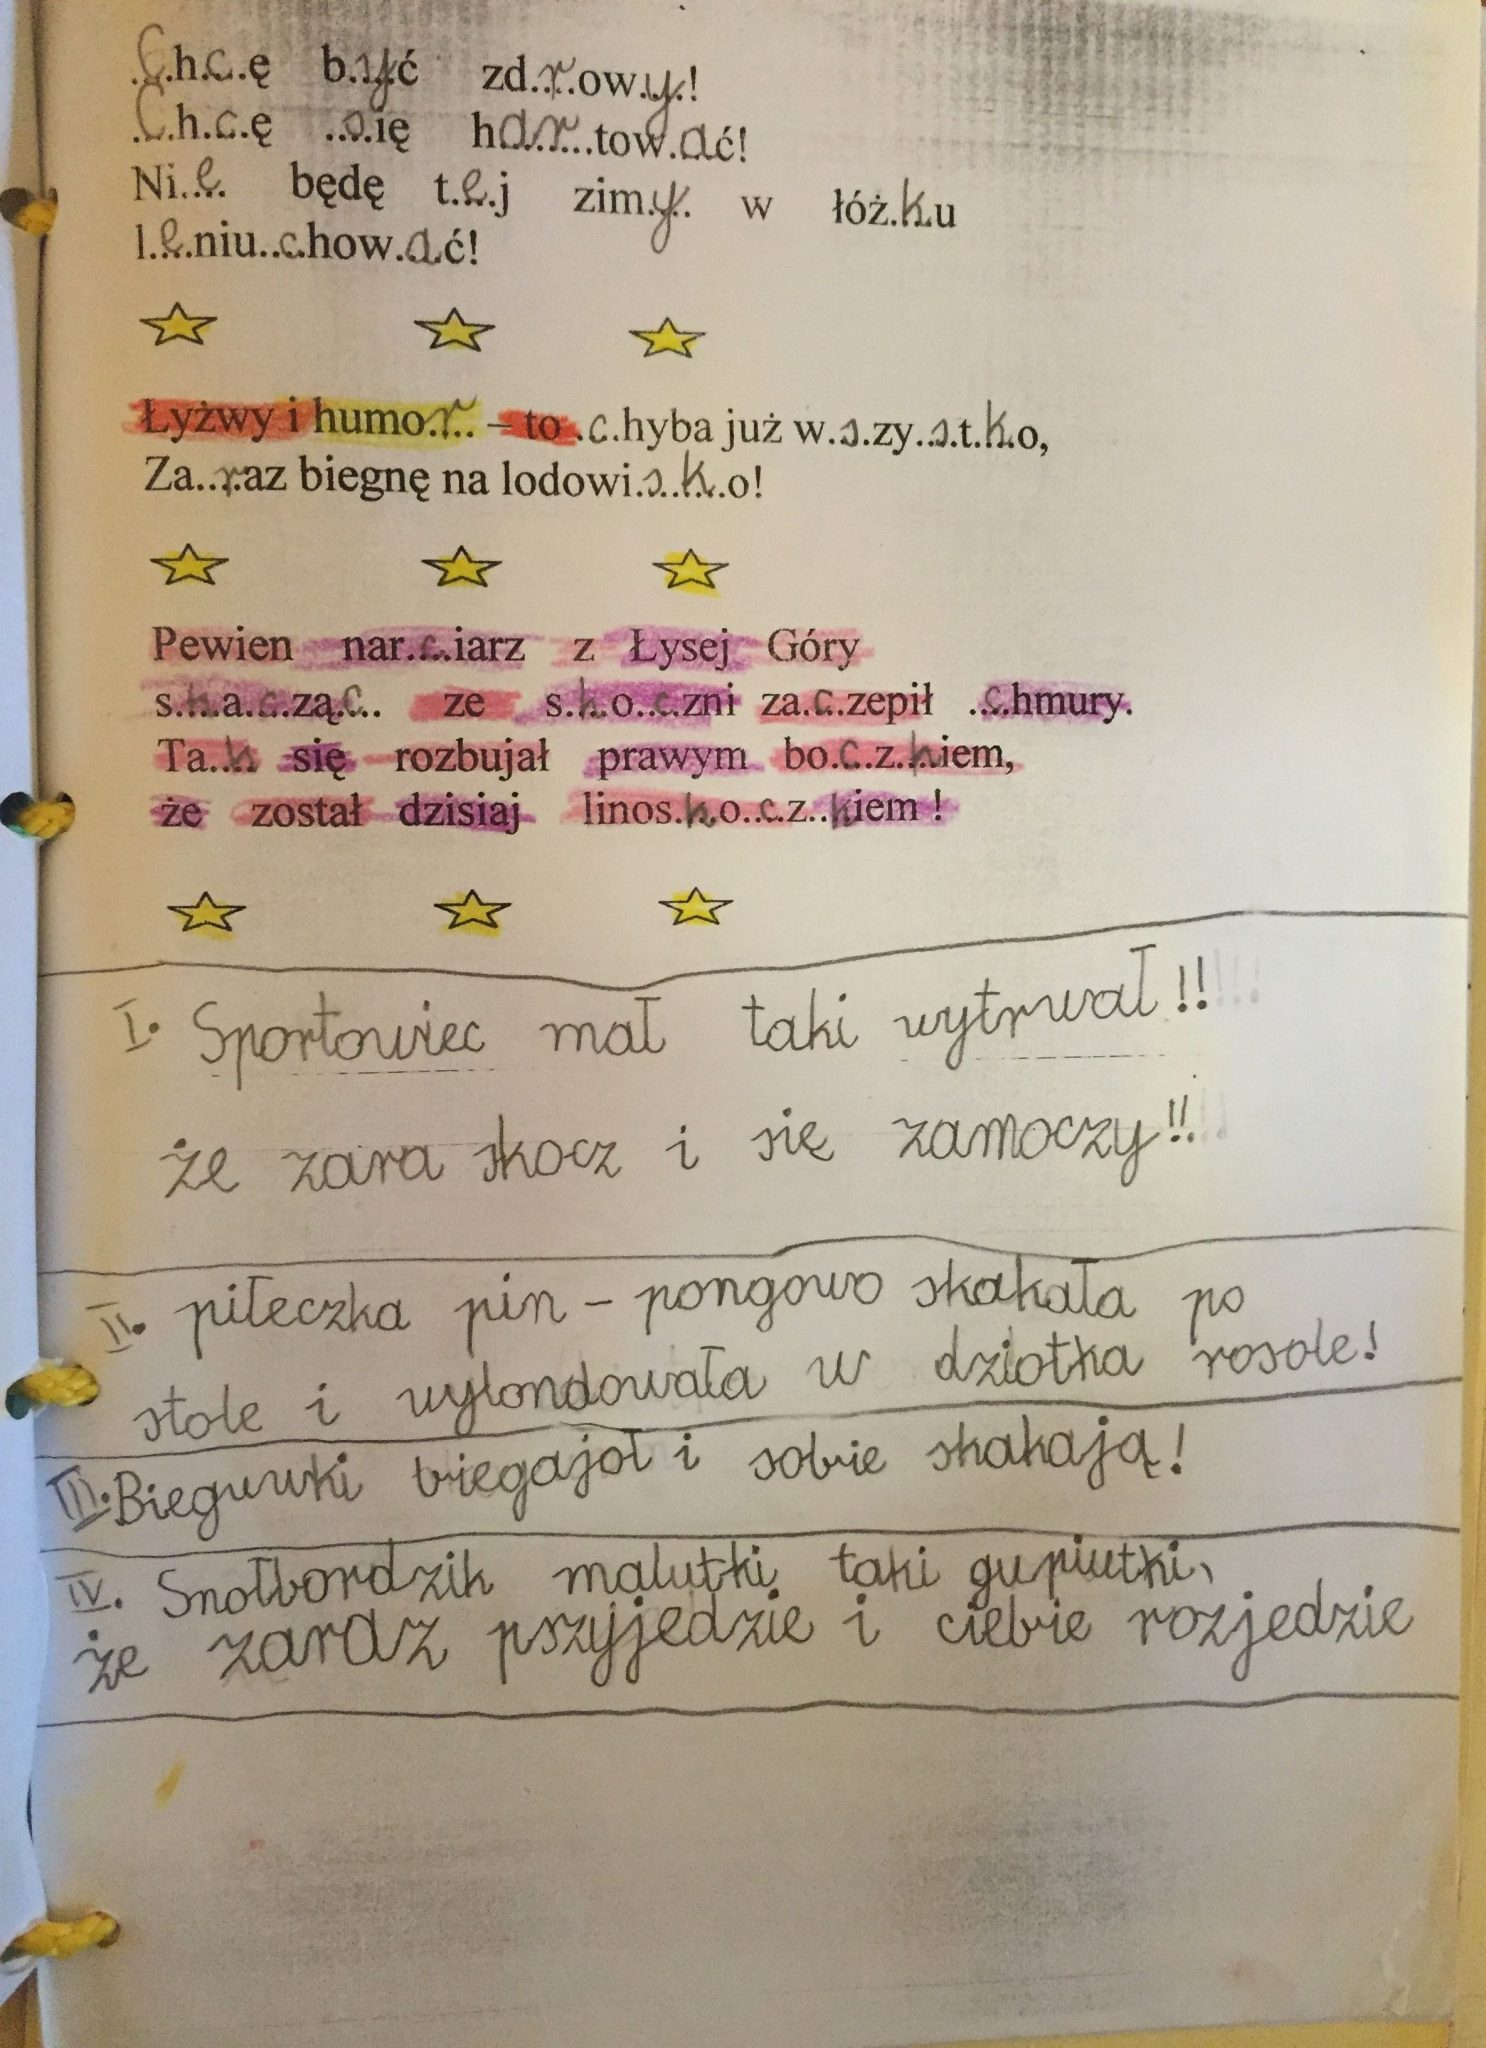 Chcę być zdrowy!
Chcę się hartować!
Nie będę tej zimy w łóżku
leniuchować!
Łyżwy i humor – to chyba już wszystko,
Zaraz biegnę na lodowisko!
Pewien narciarz z Łysej Góry
skacząc ze skoczni zaczepił chmury.
Tak się rozbujał prawym boczkiem,
że został dzisiaj linoskoczkiem!
I. Sportowiec mał taki wytrwał!!
że zara skocz i się zamoczy!!
II. piłeczka pin-pongowo skakała po
stole i wylondowała w dziotka rosole!
III. Bieguwki biegajoł i sobie skakają!
IV. Snołbordzik malutki taki gupiutki,
że zaraz pszyjedzie i ciebie rozjedzie